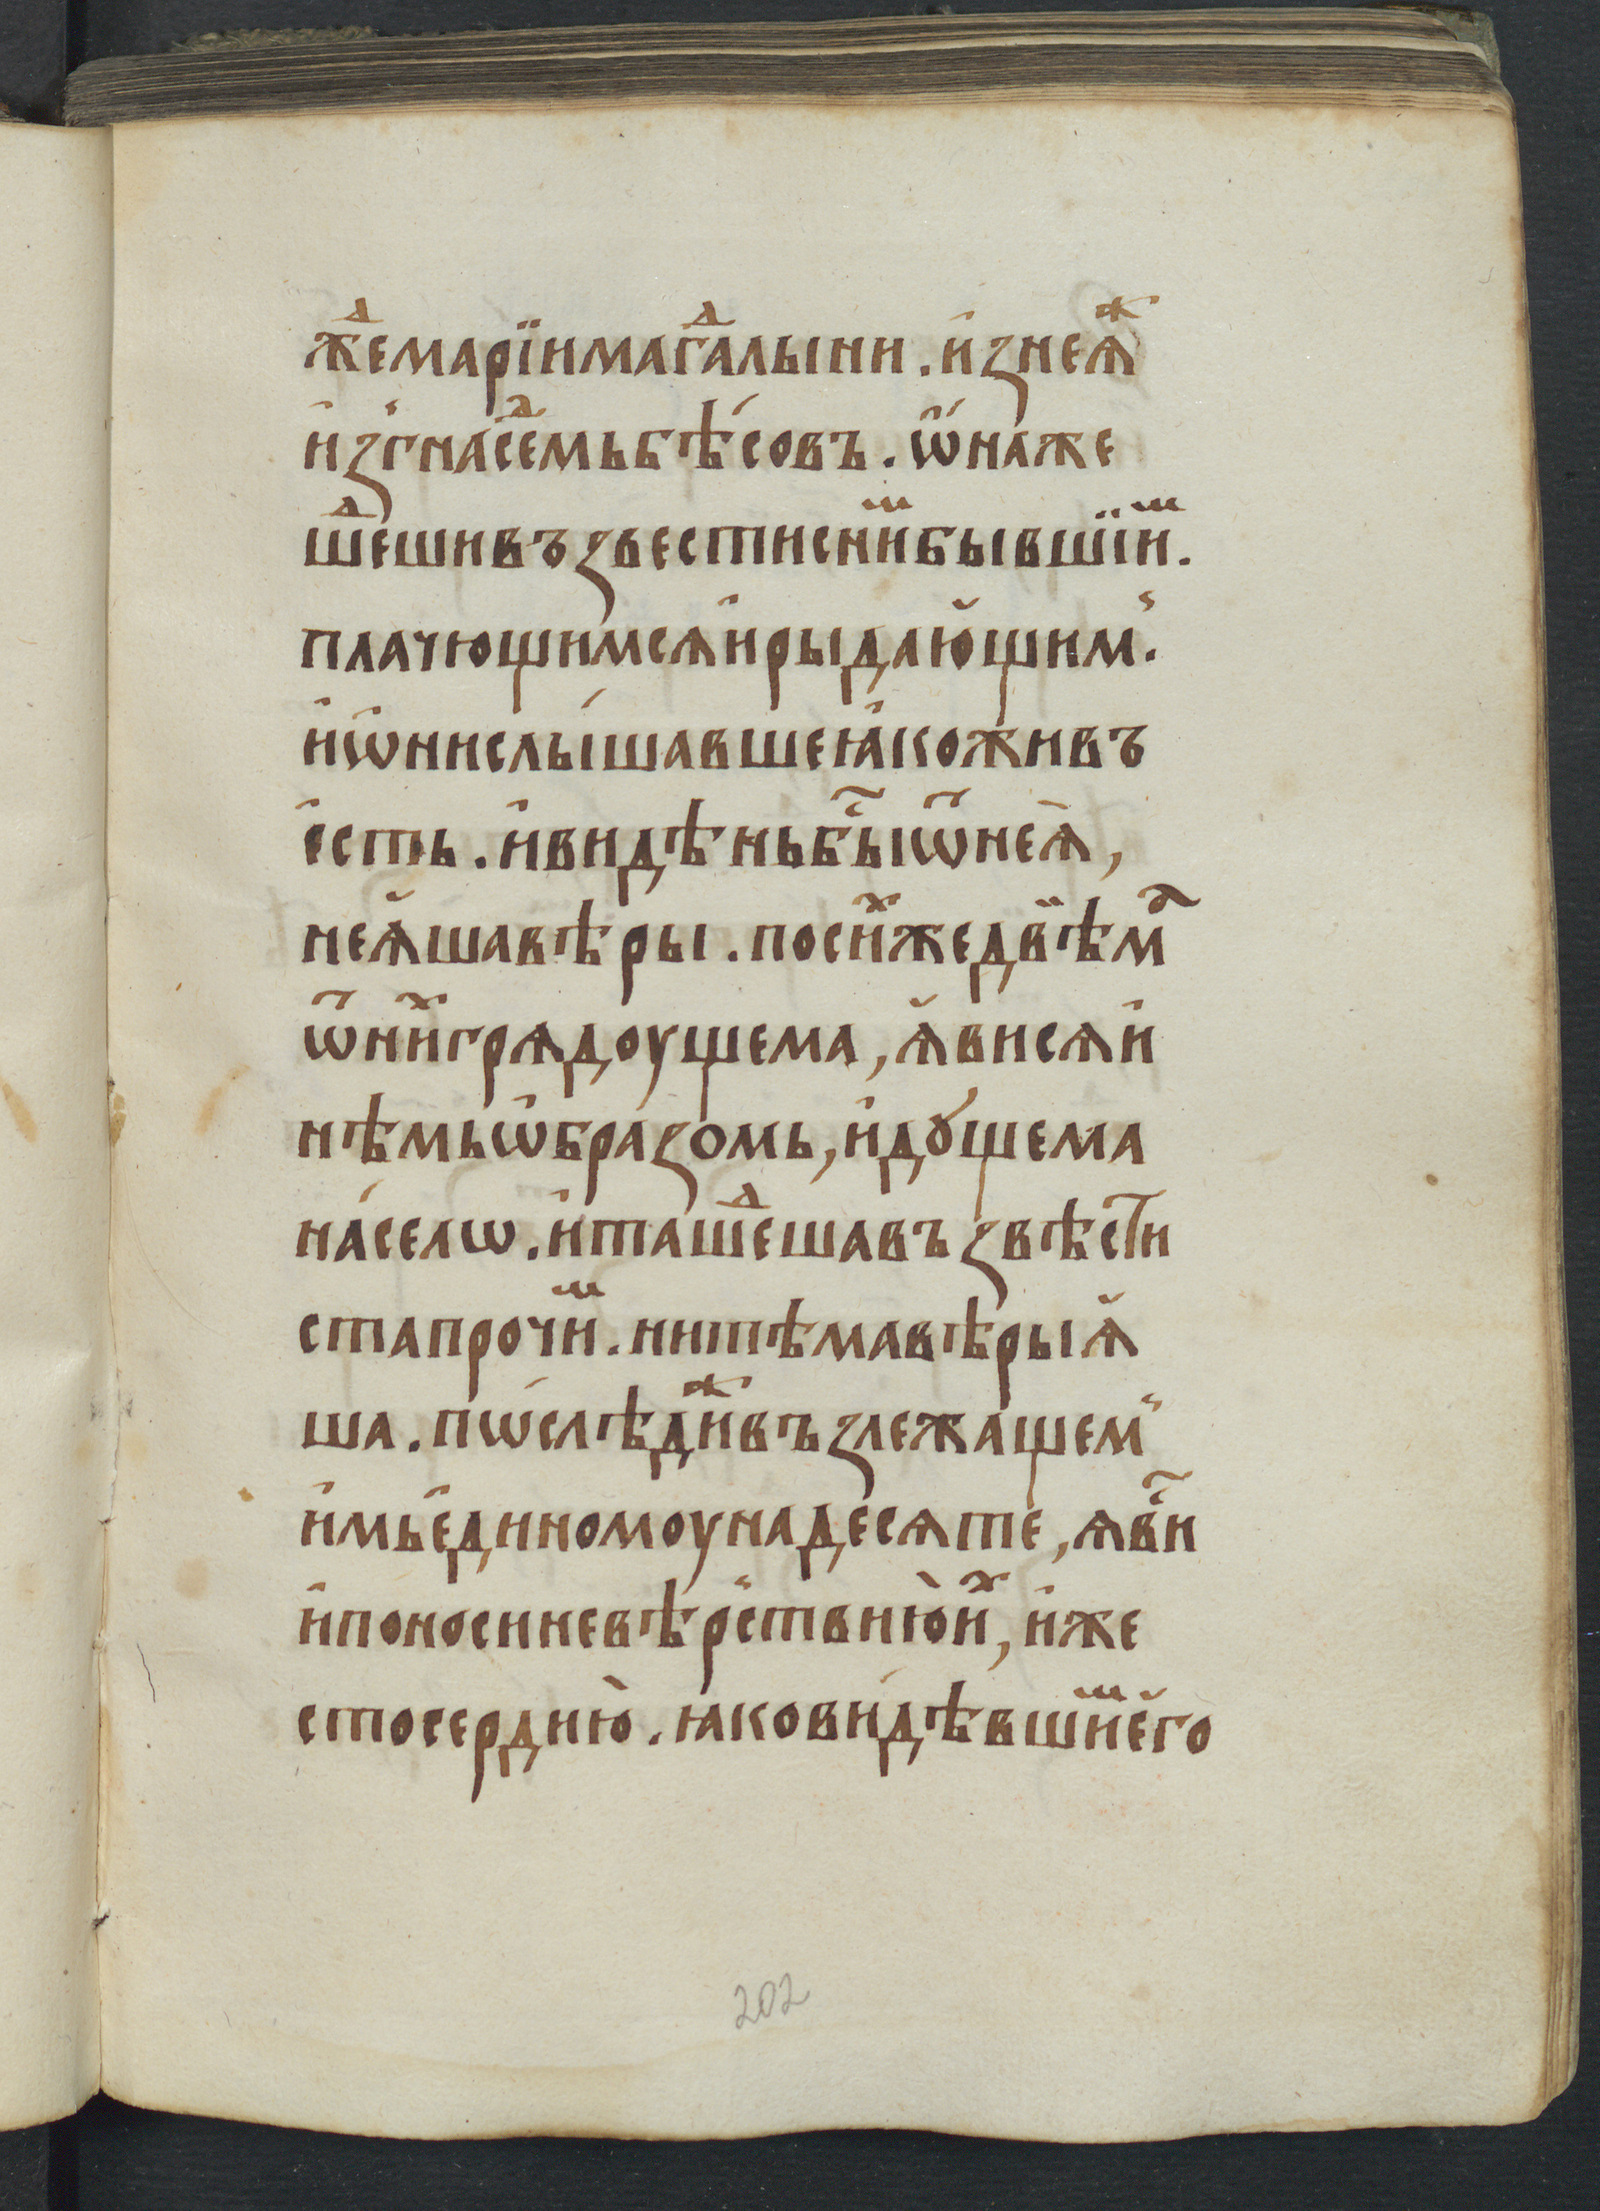 жⷣемарїимагⷣалыни. и҆знеѧⷤ
и҆згнасⷣемьбѣ́совъ. ѿнаже
шеⷣшивъзвестисниⷨбывшїиⷨ.
плачющимсѧи҆рыдаю҆щим̾.
и҆ѡ҆нислы́шавшеꙗ҆коживъ
є҆сть. и҆видѣньбы́ⷭ҇ѿнеѧ̀,
неѧ҆шавѣры. посиⷯжедвѣ̈маⷶ
ѿниⷯгрѧдоущема, ꙗ҆висѧи҆
нѣмьѡ҆бразомь, и҆дꙋ́щема
на́селѡ. и҆ташеⷣшавъзвѣсти
стапрочиⷨ. нитѣмавѣрыѧ҆
ша. пѡ́слѣдиⷤвъзлежащем̾
и҆мье҆диномоунадесѧте, ѧви́ⷭ҇
и҆поносиневѣрⸯствиюи҆ⷯ, и҆же
стосердию̀. ꙗковидѣвшиⷨе҆го
202